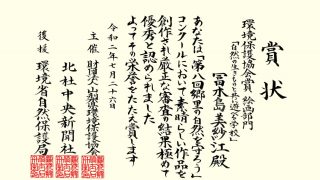 賞状
環境保護協会賞 絵画部門
「自然の生きものと共に過ごす学校」
冨水島美紗江殿
あなたは「第八回郷里の自然を守ろう」
コンクールにおいて素晴らしい作品を
創作され厳正な審査の結果極めて
優秀と認められました
よってその栄誉をたたえ賞します
令和二年七月二十六日
主催 財団法人山梨県環境保護協会
北杜中央新聞社
後援 環境省自然保護局